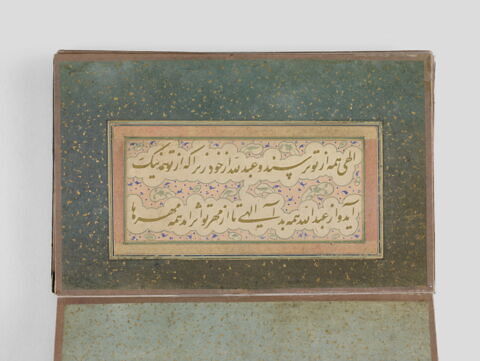 الهی همه از تو ترسند و عبدالله از خود زیرا که از تو همه نیک
آید و از عبدالله همه بد آید الهی تا از مهر تو اثر آمد همه مهرها